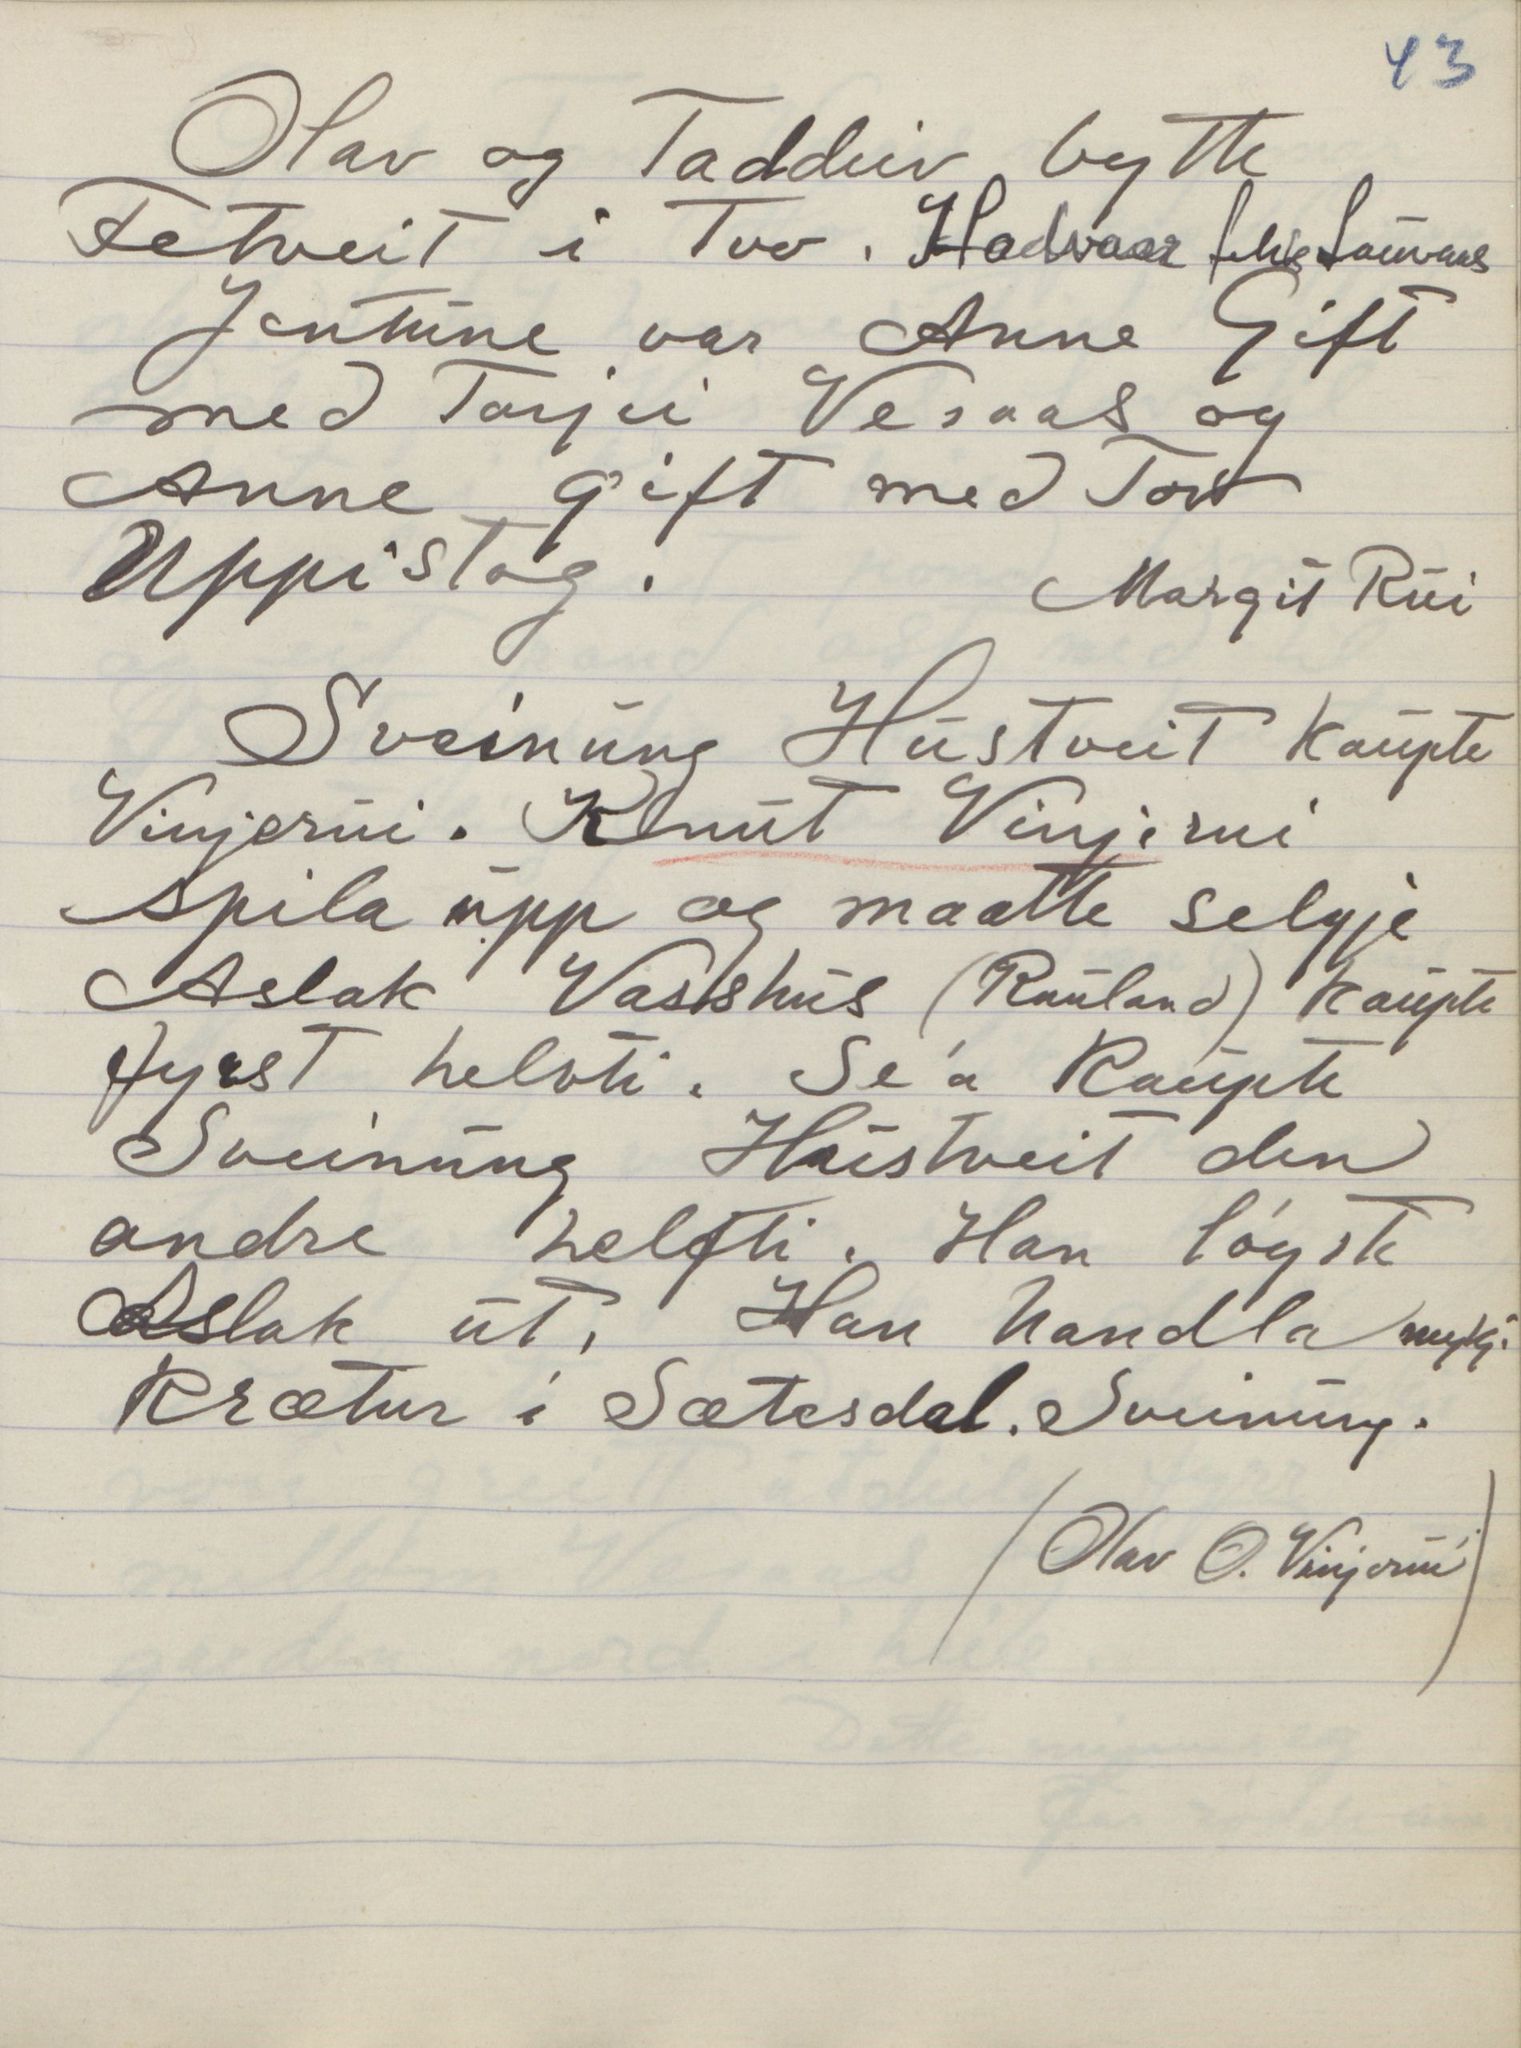 43
Olav og Taddeiv bytte
Fetveit i Tvo. Hadvaar fekk Sauvaas
Jentune var Anne Gift
med Tarjei Vesaas og
Anne gift med Tov
Uppistog.
Margit Rui
Sveinung Hustveit kaupte
Vinjerui. Knut Vinjerui
spila upp og maatte selgje
Aslak Vasshus (Rauland) kaupte
fyrst helvti. Se'a kaupte
Sveinung Hustveit den
andre helfti. Han løyste
Aslak ut. Han handla mykj.
krætur i Sætesdal. Sveinung.
(Olav O. Vinjerui)